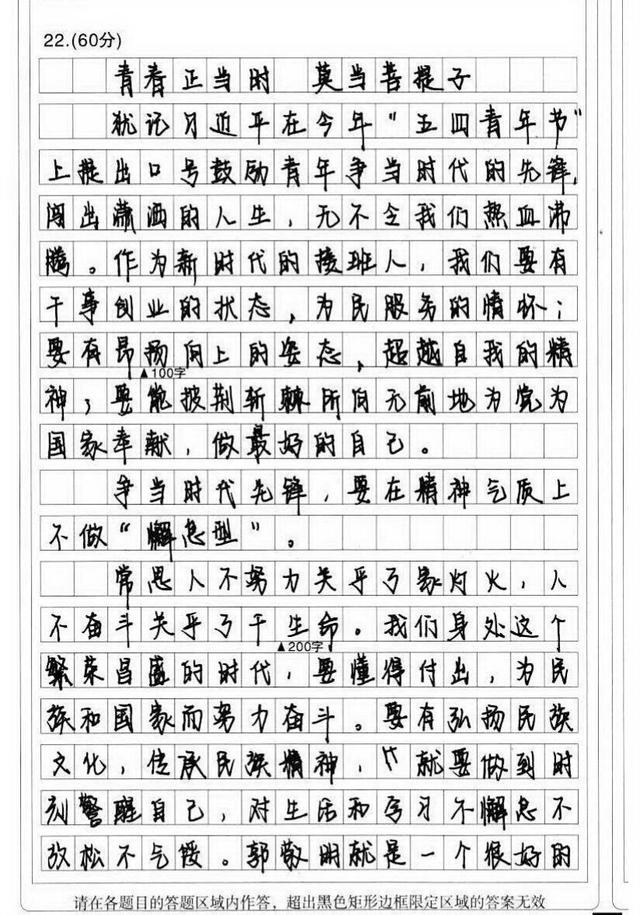 22.(60分)
青春正当时 莫当菩提子
犹记习近平在今年“五四青年节”
上提出口号鼓励青年争当时代的先锋,
闯出潇洒的人生，无不令我们热血沸
腾。作为新时代的接班人，我们要有
干事创业的状态，为民服务的情怀；
要有昂扬向上的姿态，超越自我的精
▲100字
神；要能披荆斩棘所向无前地为党为
国家奉献，做最好的自己。
争当时代先锋，要在精神气质上
不做“懈怠型”。
常思人不努力关乎万家灯火，人
不奋斗关乎万千生命。我们身处这个
▲200字
繁荣昌盛的时代，要懂得付出，为民
族和国家而努力奋斗。要有弘扬民族
文化，传承民族精神，就要做到时
刻警醒自己，对生活和学习不懈怠不
放松不气馁。郭敬明就是一个很好的
请在各题目的答题区域内作答，超出黑色矩形边框限定区域的答案无效